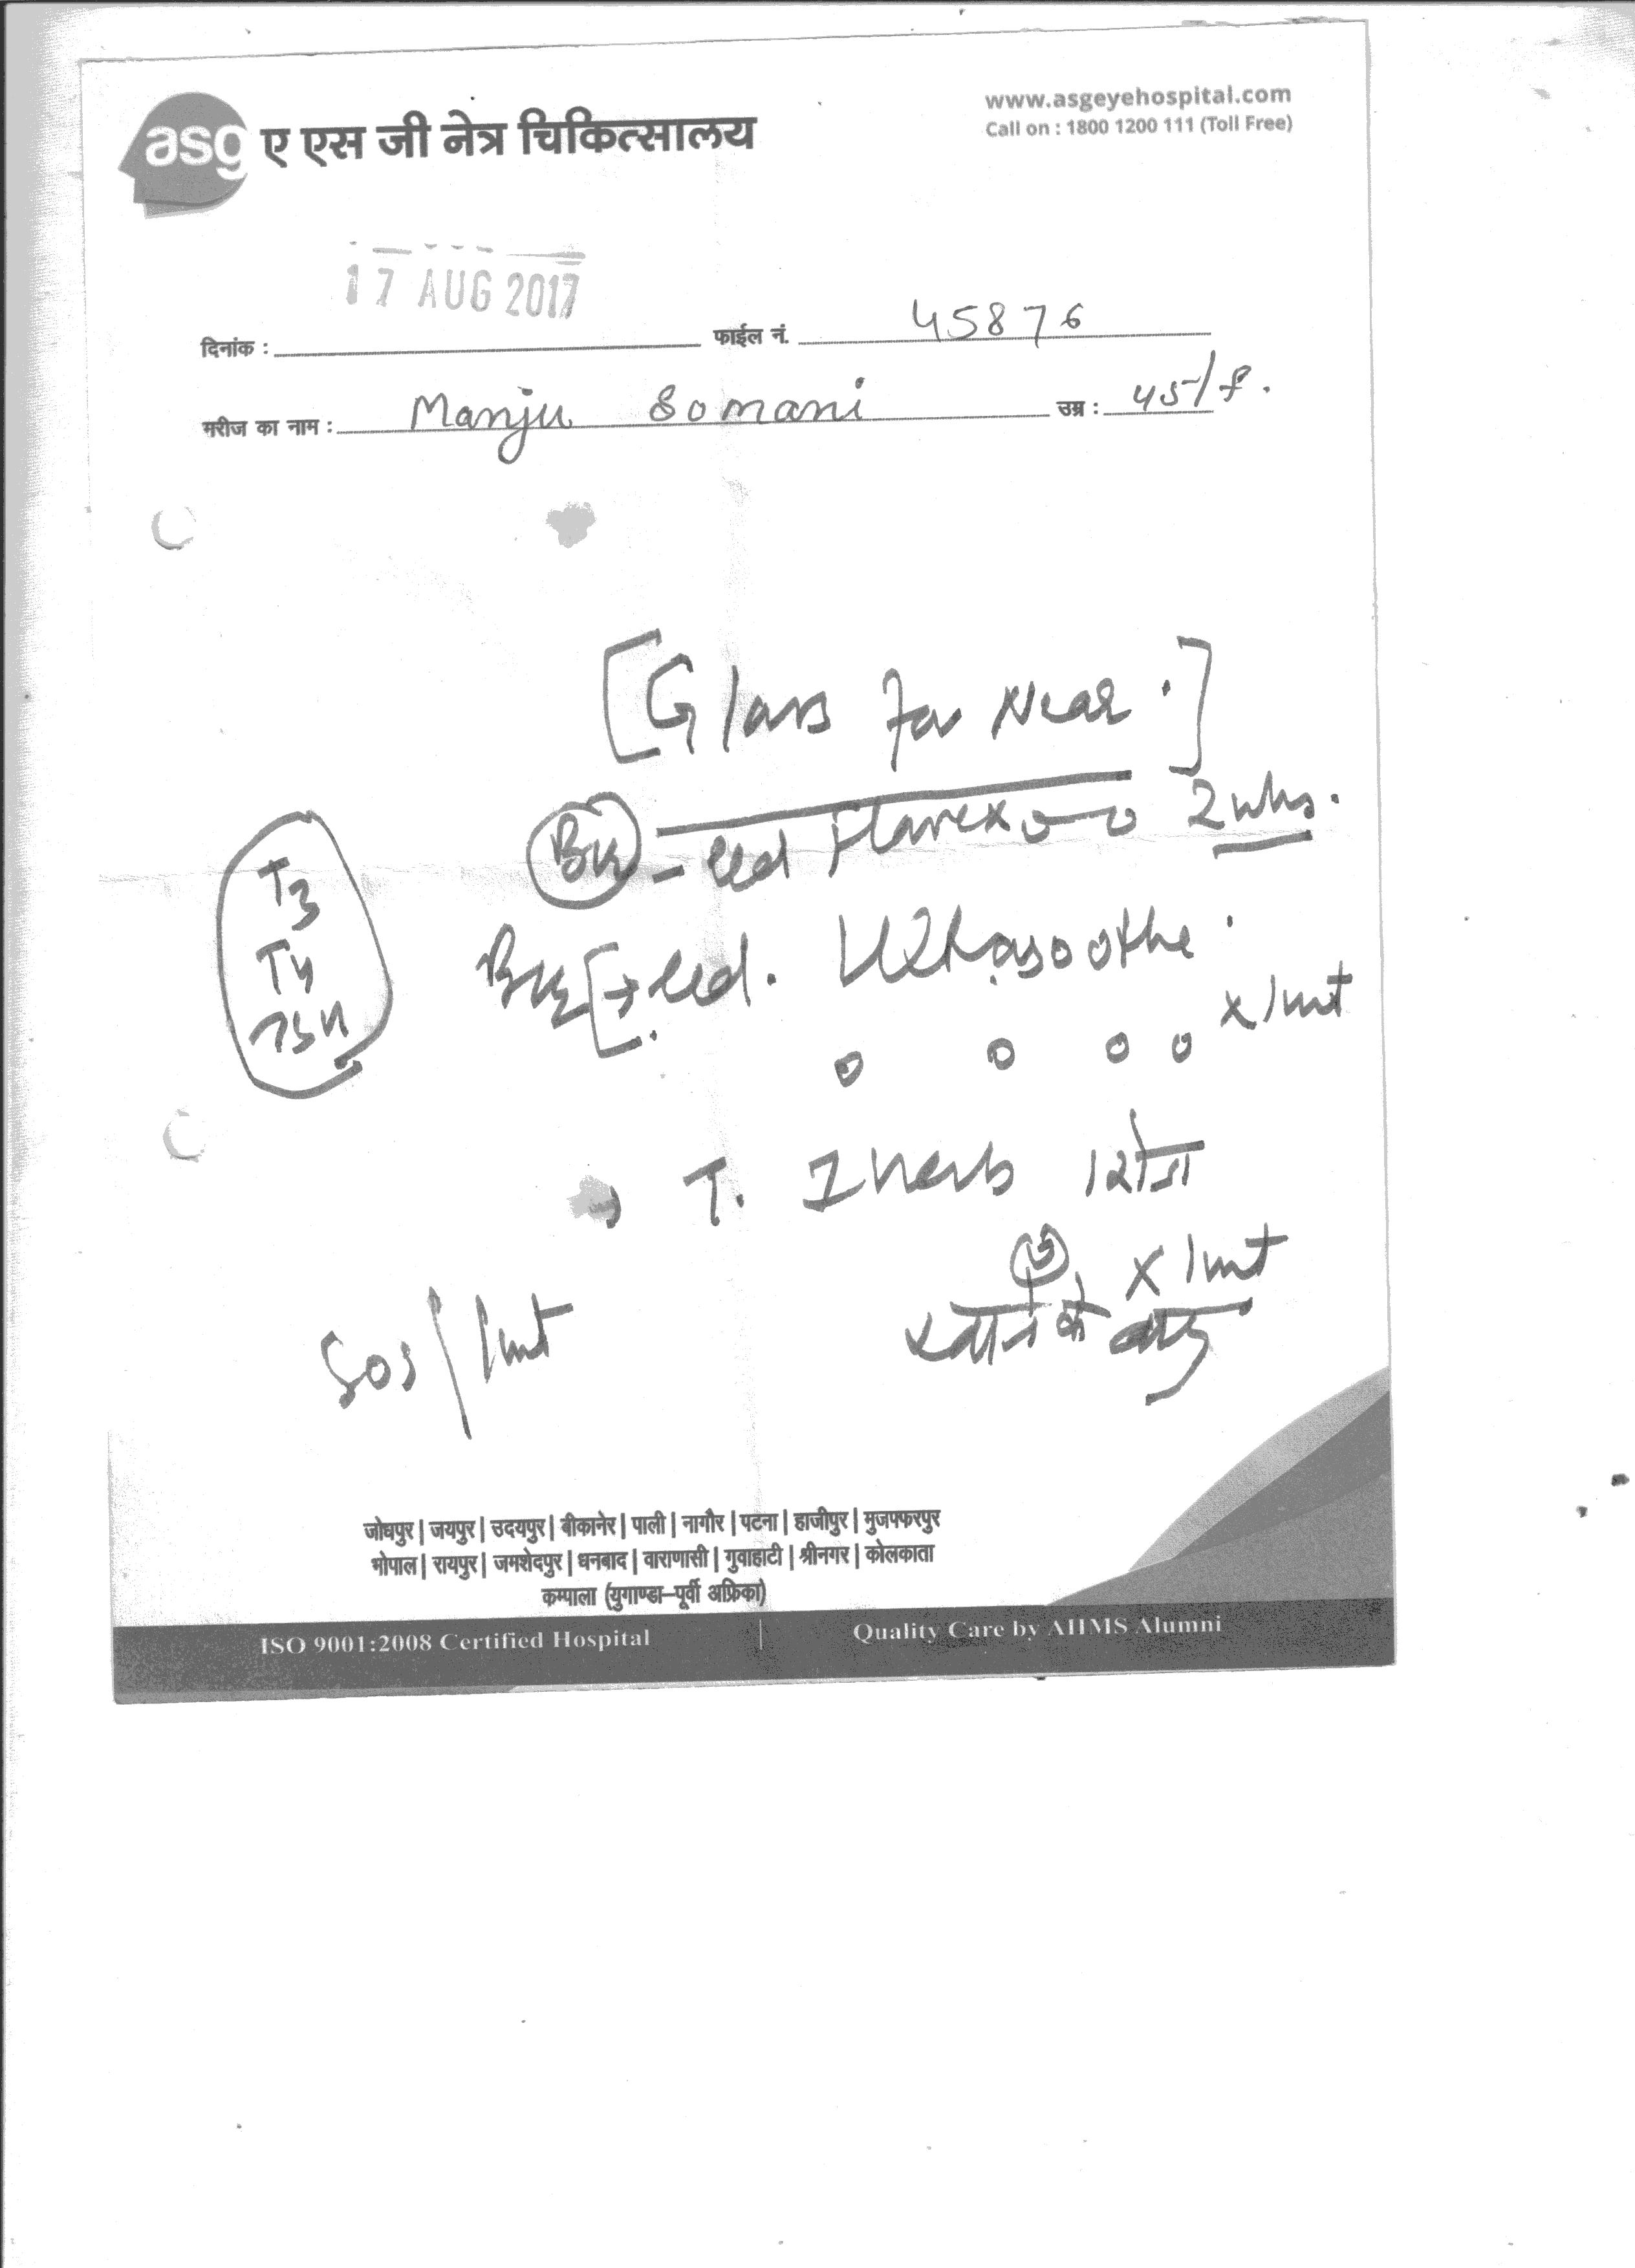 www.asgeyehospital.com
Call on : 1800 1200 111 (Toll Free)
asg ए एस जी नेत्र चिकित्सालय
17 AUG 2017
दिनांक : फाईल नं. 45876
मरीज का नाम : Manju Somani उम्र : 45/f.
[Glass for Near.]
BE - eed Flarex o-o 2 wks.
T3
T4
TSH
BE [→ eed. Ultrasoothe.
x 1mt
o o o o
T. Iherb 1 रोज
x 1mt
खाने के बाद
SOS/1mt
जोधपुर | जयपुर | उदयपुर | बीकानेर | पाली | नागौर | पटना | हाजीपुर | मुजफ्फरपुर
भोपाल | रायपुर | जमशेदपुर | धनबाद | वाराणसी | गुवाहाटी | श्रीनगर | कोलकाता
कम्पाला (युगाण्डा–पूर्वी अफ्रिका)
ISO 9001:2008 Certified Hospital | Quality Care by AIIMS Alumni